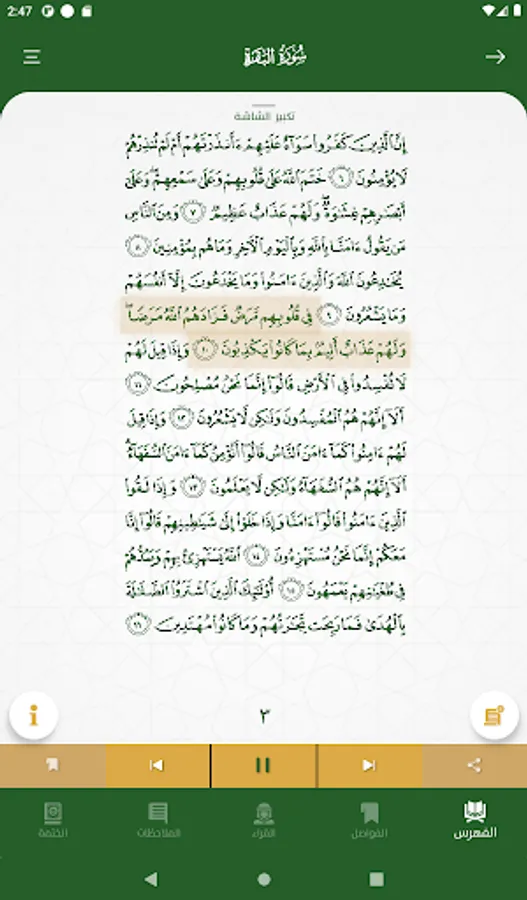 2:47
سُورَةُ البَقَرَةِ
تكبير الشاشة
إِنَّ ٱلَّذِينَ كَفَرُوا۟ سَوَآءٌ عَلَيْهِمْ ءَأَنذَرْتَهُمْ أَمْ لَمْ تُنذِرْهُمْ
لَا يُؤْمِنُونَ ٦ خَتَمَ ٱللَّهُ عَلَىٰ قُلُوبِهِمْ وَعَلَىٰ سَمْعِهِمْ ۖ وَعَلَىٰٓ
أَبْصَٰرِهِمْ غِشَٰوَةٌ ۖ وَلَهُمْ عَذَابٌ عَظِيمٌ ٧ وَمِنَ ٱلنَّاسِ
مَن يَقُولُ ءَامَنَّا بِٱللَّهِ وَبِٱلْيَوْمِ ٱلْءَاخِرِ وَمَا هُم بِمُؤْمِنِينَ ٨
يُخَٰدِعُونَ ٱللَّهَ وَٱلَّذِينَ ءَامَنُوا۟ وَمَا يَخْدَعُونَ إِلَّآ أَنفُسَهُمْ
وَمَا يَشْعُرُونَ ٩ فِى قُلُوبِهِم مَّرَضٌ فَزَادَهُمُ ٱللَّهُ مَرَضًا ۖ
وَلَهُمْ عَذَابٌ أَلِيمٌۢ بِمَا كَانُوا۟ يَكْذِبُونَ ١٠ وَإِذَا قِيلَ لَهُمْ
لَا تُفْسِدُوا۟ فِى ٱلْأَرْضِ قَالُوٓا۟ إِنَّمَا نَحْنُ مُصْلِحُونَ ١١
أَلَآ إِنَّهُمْ هُمُ ٱلْمُفْسِدُونَ وَلَٰكِن لَّا يَشْعُرُونَ ١٢ وَإِذَا قِيلَ
لَهُمْ ءَامِنُوا۟ كَمَآ ءَامَنَ ٱلنَّاسُ قَالُوٓا۟ أَنُؤْمِنُ كَمَآ ءَامَنَ ٱلسُّفَهَآءُ ۗ
أَلَآ إِنَّهُمْ هُمُ ٱلسُّفَهَآءُ وَلَٰكِن لَّا يَعْلَمُونَ ١٣ وَإِذَا لَقُوا۟
ٱلَّذِينَ ءَامَنُوا۟ قَالُوٓا۟ ءَامَنَّا وَإِذَا خَلَوْا۟ إِلَىٰ شَيَٰطِينِهِمْ قَالُوٓا۟ إِنَّا
مَعَكُمْ إِنَّمَا نَحْنُ مُسْتَهْزِءُونَ ١٤ ٱللَّهُ يَسْتَهْزِئُ بِهِمْ وَيَمُدُّهُمْ
فِى طُغْيَٰنِهِمْ يَعْمَهُونَ ١٥ أُو۟لَٰٓئِكَ ٱلَّذِينَ ٱشْتَرَوُا۟ ٱلضَّلَٰلَةَ
بِٱلْهُدَىٰ فَمَا رَبِحَت تِّجَٰرَتُهُمْ وَمَا كَانُوا۟ مُهْتَدِينَ ١٦
٣
الفهرس
الفواصل
القراء
الملاحظات
الختمة